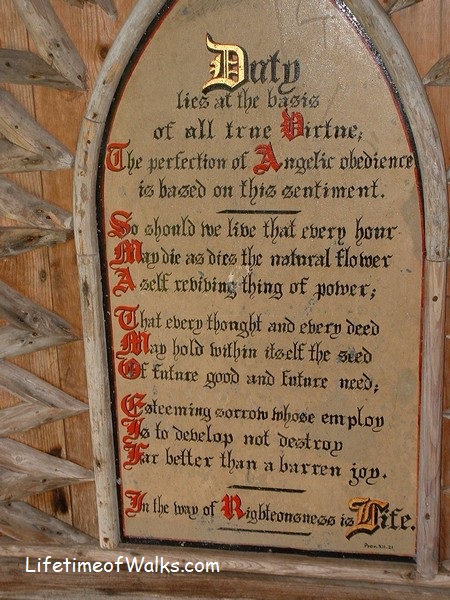 Duty
lies at the basis
of all true Virtue;
The perfection of Angelic obedience
is based on this sentiment.
So should we live that every hour
May die as dies the natural flower
A self reviving thing of power;
That every thought and every deed
May hold within itself the seed
Of future good and future need;
Esteeming sorrow whose employ
Is to develop not destroy
Far better than a barren joy.
In the way of Righteousness is Life.
LifetimeofWalks.com